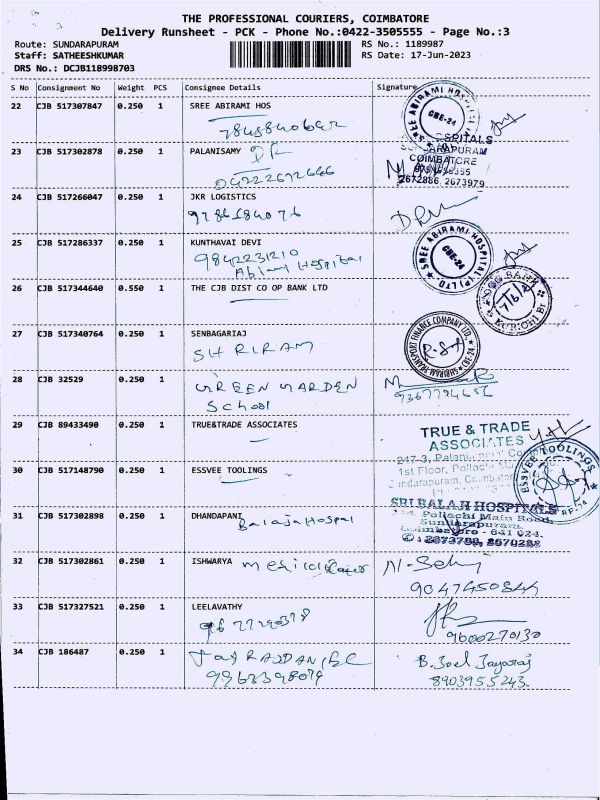 THE PROFESSIONAL COURIERS, COIMBATORE
Delivery Runsheet - PCK - Phone No.:0422-3505555 - Page No.:3
Route: SUNDARAPURAM
RS No.: 1189987
Staff: SATHEESHKUMAR
RS Date: 17-Jun-2023
DRS No.: DCJB118998703
S No Consignment No Weight PCS Consignee Details Signature
22 CJB 517307847 0.250 1 SREE ABIRAMI HOS
SREE ABIRAMI HOSPITAL
CBE-24
23 CJB 517302878 0.250 1 PALANISAMY
HOSPITALS
COIMBATORE
2672886, 2673979
04222672666
24 CJB 517266047 0.250 1 JKR LOGISTICS
25 CJB 517286337 0.250 1 KUNTHAVAI DEVI
9842231210
Abirami Hospital
SREE ABIRAMI HOSPITAL (P) LTD.
CBE-24
26 CJB 517344640 0.550 1 THE CJB DIST CO OP BANK LTD
27 CJB 517340764 0.250 1 SENBAGARIAJ
SHRIRAM
SHRIRAM TRANSPORT FINANCE COMPANY LTD.
CBE-24
28 CJB 32529 0.250 1 GREEN GARDEN
School
29 CJB 89433490 0.250 1 TRUE&TRADE ASSOCIATES
TRUE & TRADE
ASSOCIATES
1st Floor, Pollachi
30 CJB 517148790 0.250 1 ESSVEE TOOLINGS
ESSVEE TOOLINGS
31 CJB 517302898 0.250 1 DHANDAPANI
SRI BALAJI HOSPITALS
Pollachi Main Road,
Sundarapuram,
Coimbatore - 641 024.
2673799, 2670288
32 CJB 517302861 0.250 1 ISHWARYA
9047450844
33 CJB 517327521 0.250 1 LEELAVATHY
9600270130
34 CJB 186487 0.250 1
B. Joel Jayaraj
9963398079
8903955243